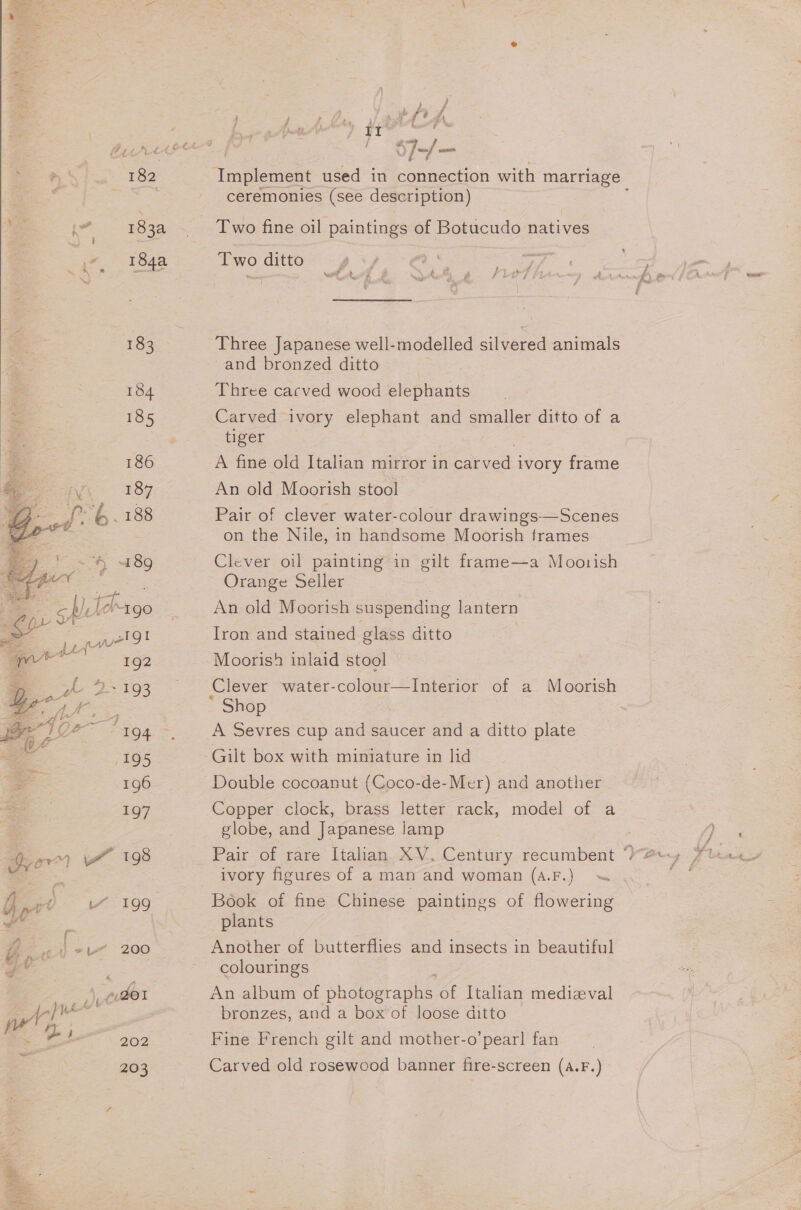 11
57-/-
182 Implement used in connection with marriage
ceremonies (see description)
183a Two fine oil paintings of Botucudo natives
184a Two ditto
183 Three Japanese well-modelled silvered animals
and bronzed ditto
184 Three carved wood elephants
185 Carved ivory elephant and smaller ditto of a
tiger
186 A fine old Italian mirror in carved ivory frame
187 An old Moorish stool
188 Pair of clever water-colour drawings—Scenes
on the Nile, in handsome Moorish frames
189 Clever oil painting in gilt frame—a Moorish
Orange Seller
190 An old Moorish suspending lantern
191 Iron and stained glass ditto
192 Moorish inlaid stool
193 Clever water-colour—Interior of a Moorish
Shop
194 A Sevres cup and saucer and a ditto plate
195 Gilt box with miniature in lid
196 Double cocoanut (Coco-de-Mer) and another
197 Copper clock, brass letter rack, model of a
globe, and Japanese lamp
198 Pair of rare Italian XV. Century recumbent
ivory figures of a man and woman (A.F.)
199 Book of fine Chinese paintings of flowering
plants
200 Another of butterflies and insects in beautiful
colourings
201 An album of photographs of Italian mediæval
bronzes, and a box of loose ditto
202 Fine French gilt and mother-o'pearl fan
203 Carved old rosewood banner fire-screen (A.F.)